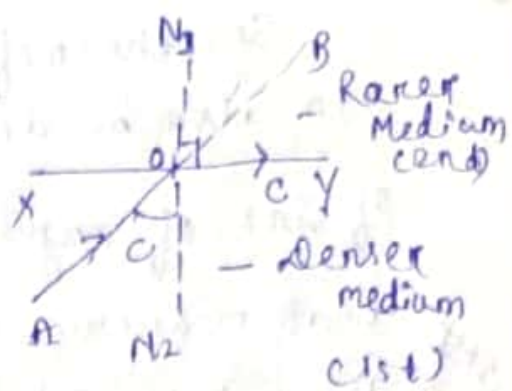 N1
B
Rarer
Medium
(2nd)
O
X
C Y
C
Denser
medium
A
N2
(1st)